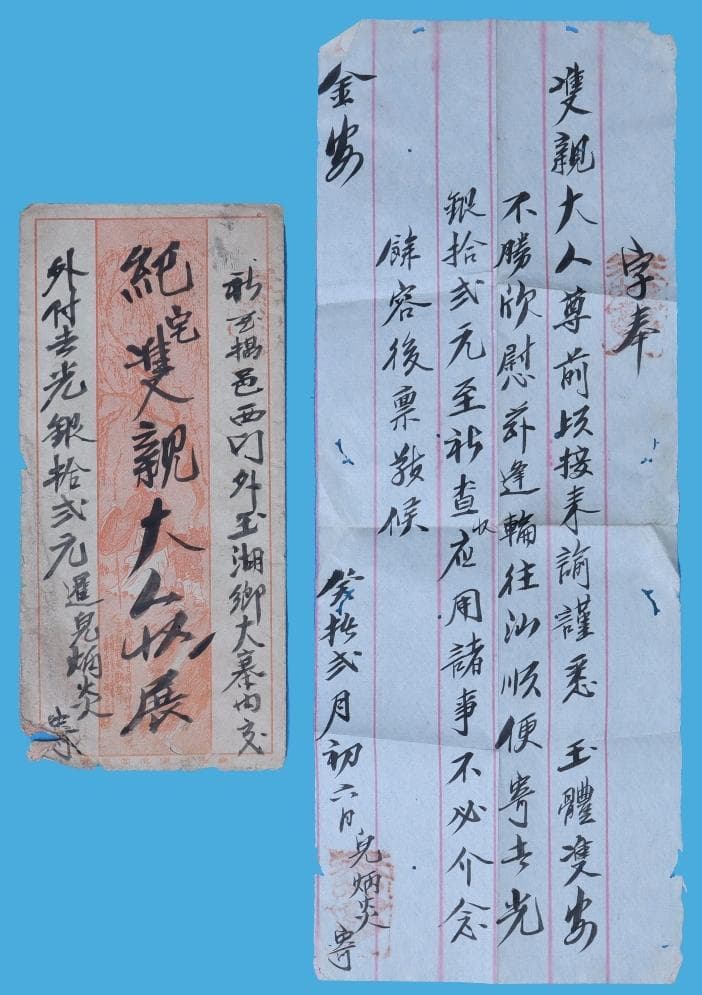 字奉
雙親大人尊前頃接来諭謹悉 玉體雙安
不勝欣慰茲逢輪往汕順便寄去光
銀拾弍元至祈查收应用諸事不必介念
餘容後禀敬候
金安
癸拾弍月初六日兒炳炎 寄
祈至揭邑西门外玉湖鄉大寨內交
紀宅雙親大人收展
外付去光銀拾弍元暹兒炳炎 寄